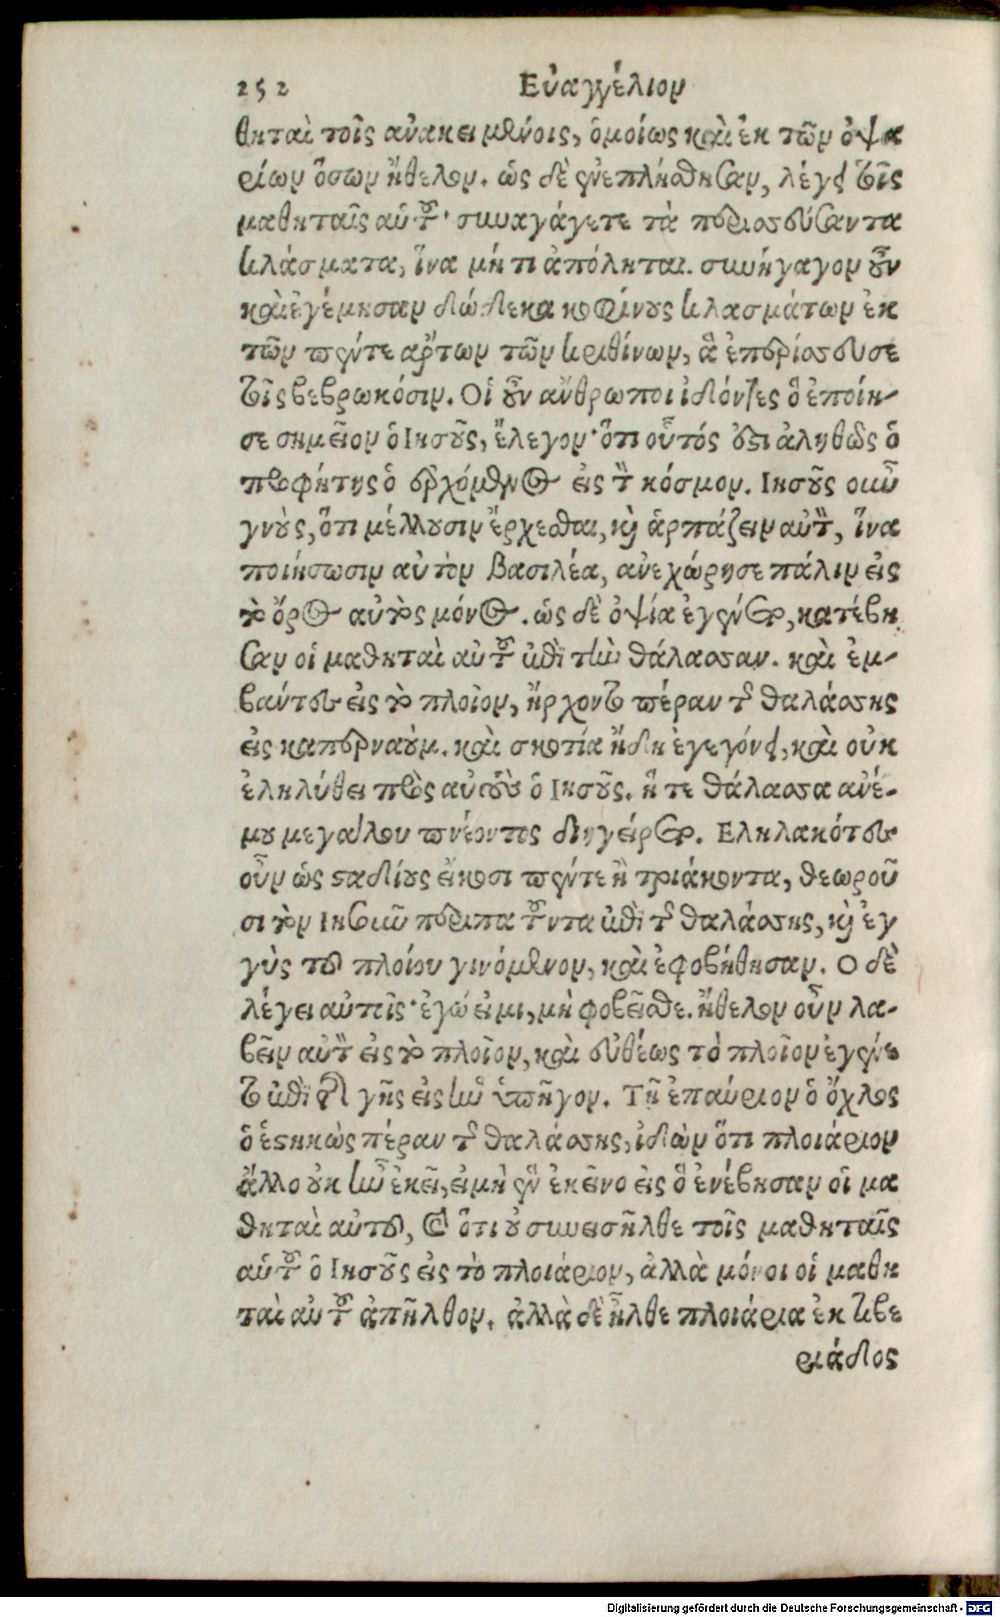 252 Εὐαγγέλιον
θηταὶ τοῖς ἀνακειμένοις, ὁμοίως καὶ ἐκ τῶν ὀψα
ρίων ὅσων ἤθελον. ὡς δὲ ἐνεπλήσθησαν, λέγει τοῖς
μαθηταῖς αὑτοῦ· συναγάγετε τὰ περισσεύσαντα
κλάσματα, ἵνα μή τι ἀπόληται. συνήγαγον οὖν
καὶ ἐγέμησαν δώδεκα κοφίνους κλασμάτων ἐκ
τῶν πέντε ἄρτων τῶν κριθίνων, ἃ ἐπερίσσευσε
τοῖς βεβρωκόσιν. Οἱ οὖν ἄνθρωποι ἰδόντες ὃ ἐποίη-
σε σημεῖον ὁ Ιησοῦς, ἔλεγον· ὅτι οὗτός ἐστι ἀληθῶς ὁ
προφήτης ὁ ἐρχόμενος εἰς τὸν κόσμον. Ιησοῦς οὖν
γνοὺς, ὅτι μέλλουσιν ἔρχεσθαι, καὶ ἁρπάζειν αὐτὸν, ἵνα
ποιήσωσιν αὐτὸν βασιλέα, ἀνεχώρησε πάλιν εἰς
τὸ ὄρος αὐτὸς μόνος. ὡς δὲ ὀψία ἐγένετο, κατέβη
σαν οἱ μαθηταὶ αὐτοῦ ἐπὶ τὴν θάλασσαν. καὶ ἐμ-
βάντες εἰς τὸ πλοῖον, ἤρχοντο πέραν τῆς θαλάσσης
εἰς καπερναούμ. καὶ σκοτία ἤδη ἐγεγόνει, καὶ οὐκ
ἐληλύθει πρὸς αὐτοὺς ὁ Ιησοῦς. ἥ τε θάλασσα ἀνέ-
μου μεγάλου πνέοντος διηγείρετο. Εληλακότες
οὖν ὡς σταδίους εἴκοσι πέντε ἢ τριάκοντα, θεωροῦ
σι τὸν Ιησοῦν περιπατοῦντα ἐπὶ τῆς θαλάσσης, καὶ ἐγ
γὺς τοῦ πλοίου γινόμενον, καὶ ἐφοβήθησαν. Ο δὲ
λέγει αὐτοῖς· ἐγώ εἰμι, μὴ φοβεῖσθε. ἤθελον οὖν λα-
βεῖν αὐτὸν εἰς τὸ πλοῖον, καὶ εὐθέως τὸ πλοῖον ἐγένε
το ἐπὶ τῆς γῆς εἰς ἣν ὑπῆγον. Τῇ ἐπαύριον ὁ ὄχλος
ὁ ἑστηκὼς πέραν τῆς θαλάσσης, ἰδὼν ὅτι πλοιάριον
ἄλλο οὐκ ἦν ἐκεῖ, εἰ μὴ ἓν ἐκεῖνο εἰς ὃ ἐνέβησαν οἱ μα
θηταὶ αὐτοῦ, καὶ ὅτι οὐ συνεισῆλθε τοῖς μαθηταῖς
αὑτοῦ ὁ Ιησοῦς εἰς τὸ πλοιάριον, ἀλλὰ μόνοι οἱ μαθη
ταὶ αὐτοῦ ἀπῆλθον. ἀλλὰ δὲ ἦλθε πλοιάρια ἐκ τιβε
ριάδος
Digitalisierung gefördert durch die Deutsche Forschungsgemeinschaft - DFG